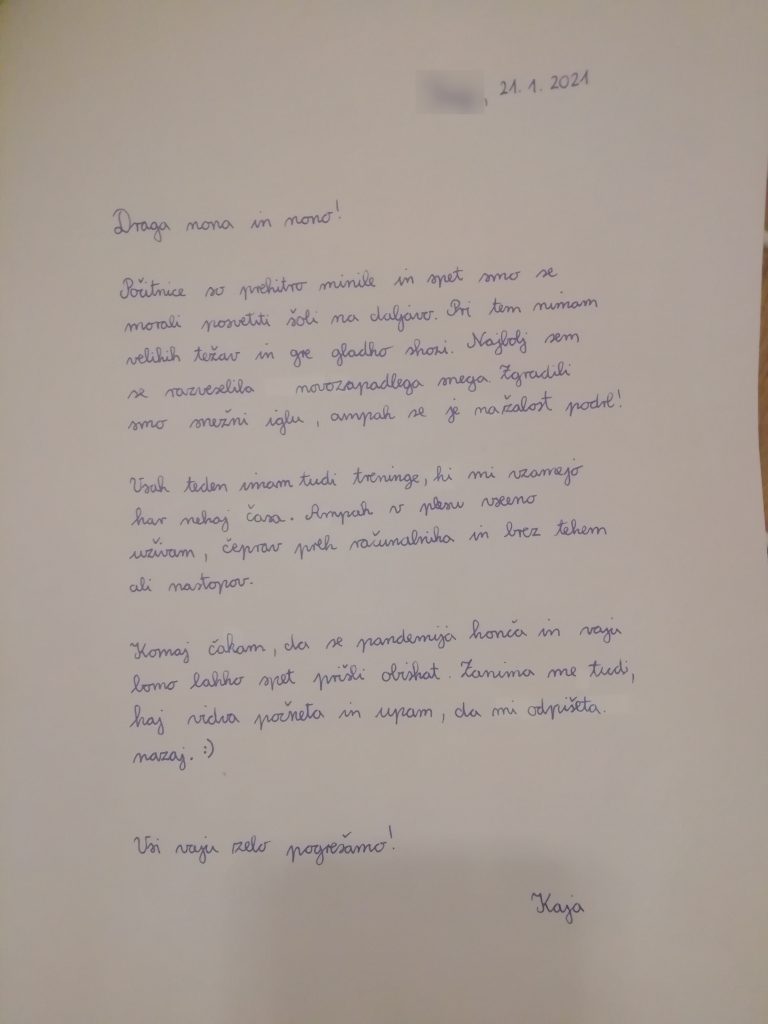 , 21. 1. 2021
Draga nona in nono!
Počitnice so prehitro minile in spet smo se
morali posvetiti šoli na daljavo. Pri tem nimam
velikih težav in gre gladko skozi. Najbolj sem
se razveselila novozapadlega snega. Zgradili
smo snežni iglu, ampak se je na žalost podrl!
Vsak teden imam tudi treninge, ki mi vzamejo
kar nekaj časa. Ampak v plesu vseeno
uživam, čeprav prek računalnika in brez tekem
ali nastopov.
Komaj čakam, da se pandemija konča in vaju
bomo lahko spet prišli obiskat. Zanima me tudi,
kaj vidva počneta in upam, da mi odpišeta.
nazaj. :)
Vsi vaju zelo pogrešamo!
Kaja